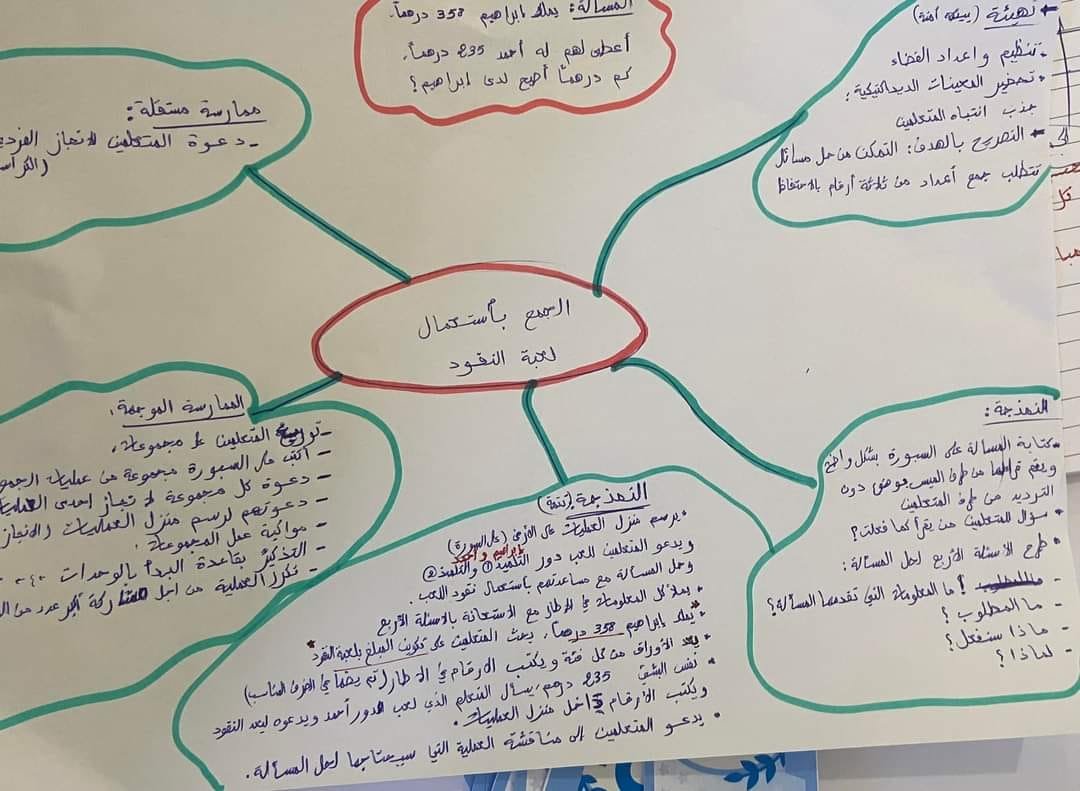 المسألة: يملك ابراهيم 358 درهماً.
أعطى لهم له أحمد 235 درهماً.
كم درهماً أصبح لدى ابراهيم؟
تهيئة (بيئة آمنة)
تنظيم و اعداد الفضاء
تحضير المعينات الديداكتيكية:
جذب انتباه المتعلمين
التصريح بالهدف: التمكن من حل مسائل
تتطلب جمع أعداد من ثلاثة أرقام بالاحتفاظ
ممارسة مستقلة:
- دعوة المتعلمين للانجاز الفردي
الجمع بأستعمال
لعبة النقود
الممارسة الموجهة:
- توزيع المتعلمين على مجموعات.
- أكتب على السبورة مجموعة من عمليات الجمع
- دعوة كل مجموعة لانجاز إحدى العمليات
- دعوتهم لرسم منزل العمليات والانجاز
- مواكبة عمل المجموعات.
- التذكير بقاعدة البدأ بالوحدات
- تكرر العملية من أجل مشاركة أكبر عدد من
النمذجة (تتمة)
• يرسم منزل العمليات على الأرض (على السبورة)
ابراهيم و أحمد
ويدعو المتعلمين للعب دور التلميذ ① والتلميذ ②
وحل المسألة مع مساعدتهم باستعمال نقود اللعب.
• يملأ كل المعلومات في الإطار مع الاستعانة بالأسئلة الأربع
• "يملك ابراهيم 358 درهماً". يبحث المتعلمين على تكوين المبلغ بلعبة النقود
• يعد الأوراق من كل فئة و يكتب الأرقام في الاطار (ثم يضعها في الخانة المناسب)
• نفس الشيئ 235 درهم، يسأل المتعلم الذي لعب دور أحمد ويدعوه ليعد النقود
ويكتب الأرقام داخل منزل العمليات.
• يدعو المتعلمين إلى مناقشة العملية التي سيحتاجها لحل المسألة.
النمذجة:
• كتابة المسألة على السبورة بشكل واضح
ويقم قرائتها من طرف الميسر فوضى دون
الترديد من طرف المتعلمين
• سؤال للمتعلمين من يقرأ كما فعلت؟
• طرح الأسئلة الأربع لحل المسألة:
- ما المعلومات التي تقدمها المسألة؟
- ما المطلوب؟
- ماذا سنفعل؟
- لماذا؟